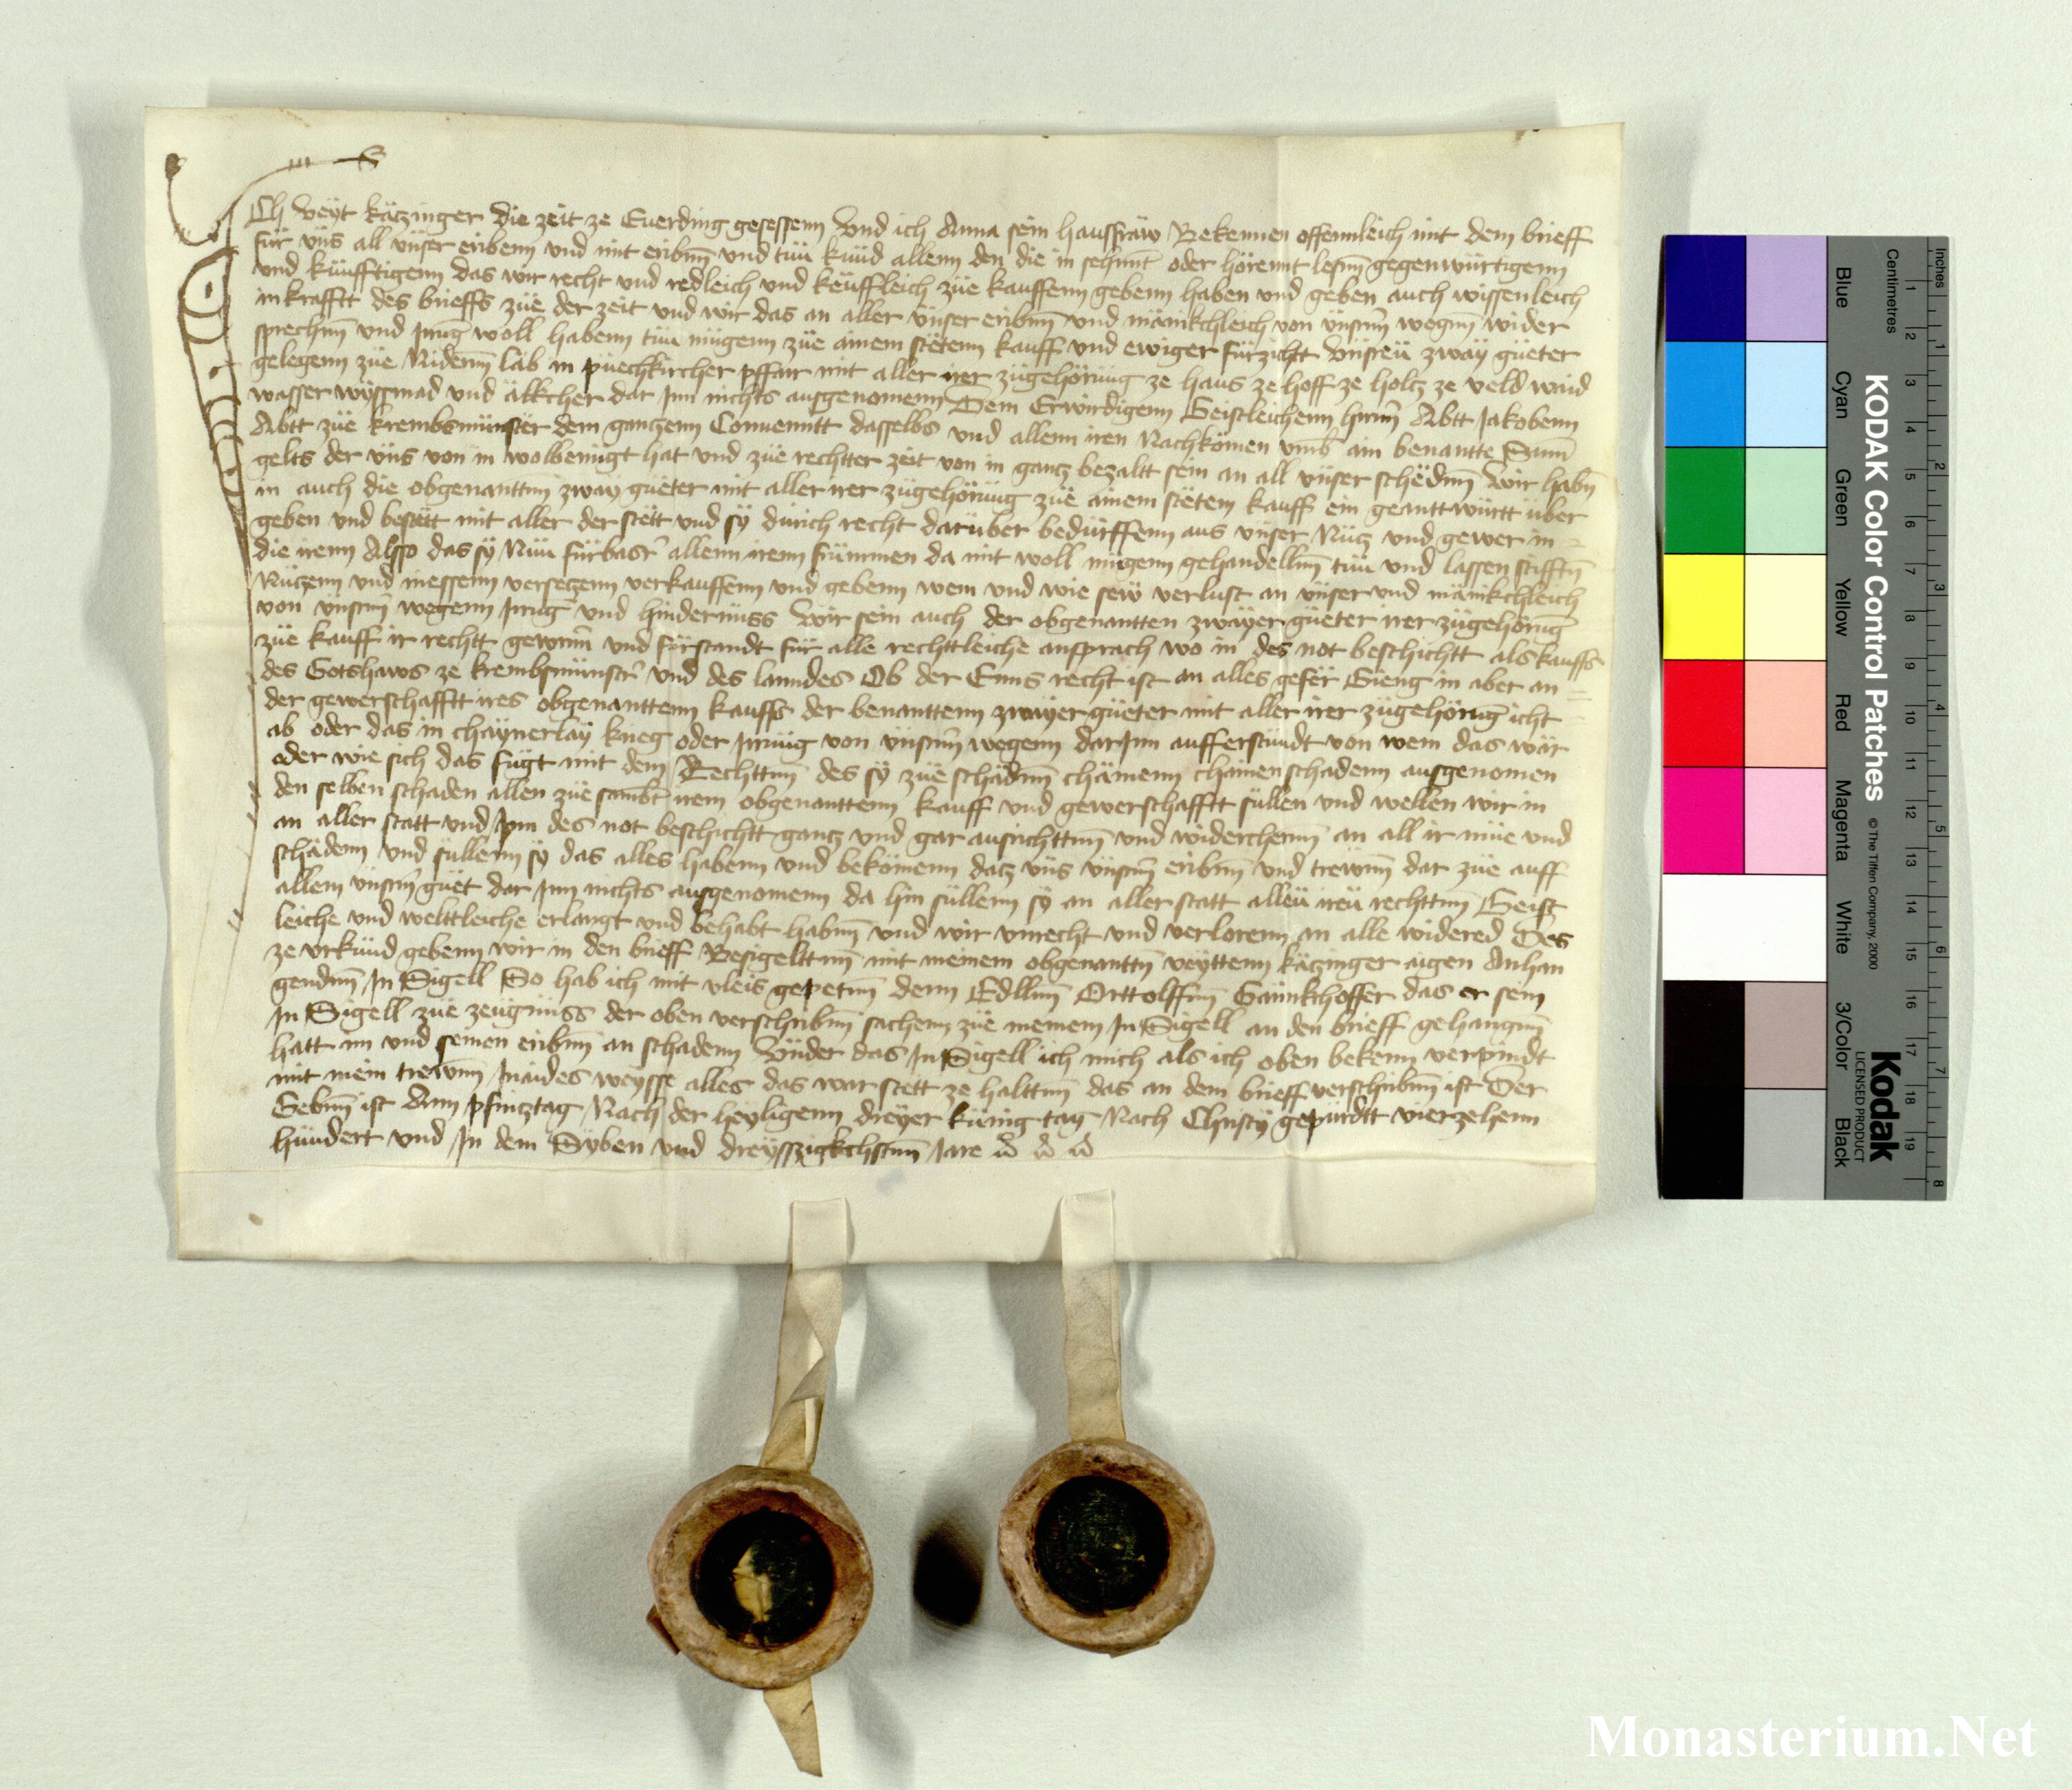 Ich Veÿt kätzinger die zeit ze Euerding gesessenn Vnd ich Anna sein hausfraw Bekennen offennleich mit dem brieff
für vns all vnser eribenn vnd mit eribnn̄ vnd tün künd allenn den die in sehnnt oder hörennt lesnn̄ gegenwürtigenn
vnd künfftigenn das wir recht vnd redleich vnd keüffleich züe kauffenn gebenn haben vnd geben auch wissenleich
in krafftt des brieffs züe der zeit vnd wir das an aller vnser eribnn̄ vnd mänikchleich von vnsern̄ wegnn̄ wider
sprechnn̄ vnd jrruḡ woll habenn tün mügenn züe ainem stëtenn kauff vnd ewiger fürzicht Vnsreü zwaÿ güeter
gelegenn züe Nidernn̄ läb in püechkircher pffarr mit aller irer zügehörüng ze haus ze hoff ze holtz ze veld waid
wasser wÿssmad vnd äkcher dar jnn nichts ausgenomenn Dem Erwirdigenn Geistleichenn herrn̄ Abtt Jakobenn
Abtt züe krembsmünstër dem gantzenn Conuenntt dasselbs vnd allenn iren Nachkömen vmb ain benantte Sum̄
gelts der vns von in wolbenügt hat vnd züe rechtter zeit von in gantz bezaltt sein an all vnser schëdnn̄ Wir habn̄
in auch die obgenanttnn zwaÿ güeter mit aller irer zügehörüng züe ainem stëtem kauff ein geanttwürtt über
geben vnd bestëtt mit aller der stëtt vnd sÿ dürich recht darüber bedürffenn aus vnser Nütz vnd gewer in
die irenn Also das sÿ Nün fürbasr̄ allenn irenn frümmen da mit woll mügenn gehandellnn̄ tün vnd lassen stifftn̄
Nützenn vnd niessenn versetzenn verkauffenn vnd gebenn wem vnd wie sew verlust an vnser vnd mänikchleich
von vnsern̄ wegenn jrruḡ vnd hindernüss Wir sein auch der obgenantten zwaÿer güeter irer zügehöruḡ
züe kauff ir rechtt gewernn̄ vnd fürstandt für alle rechttleiche ansprach wo in des not beschichtt als kauffs
des Gotshaws ze krembsmünstr̄ vnd des lanndes Ob der Enns recht ist an alles gefër Gieng in aber an
der gewerschafftt ires obgenanttenn kauffs der benanttenn zwaÿer güeter mit aller irer zügehöruḡ icht
ab oder das in chaÿnerlaÿ krieg oder jrrüg von vnsern̄ wegenn darjnn aufferstündt von wem das wär
oder wie sich das fügt mit dem Rechttnn̄ des sÿ züe schädnn̄ chämenn chainen schadenn ausgenomen
den selben schaden allen züe sambt irem obgenanttenn kauff vnd gewerschafftt süllen vnd wellen wir in
an aller statt vnd jnn des not beschichtt gantz vnd gar ausrichttnn̄ vnd widerchernn̄ an all ir müe vnd
schädenn vnd süllenn sÿ das alles habenn vnd bekömenn datz vns vnsern̄ eribnn̄ vnd trewnn̄ dar züe auff
allem vnserm̄ güet dar jnn nichts ausgenomenn da hin süllenn sÿ an aller statt alleü ireü rechttnn̄ Geist
leiche vnd welttleiche erlangt vnd behabt habnn̄ vnd wir vnrecht vnd verlorenn an alle widered Des
ze vrkünd gebenn wir in den brieff Besigelttnn̄ mit meinem obgenanttn̄ veÿttenn kätzinger aigen Anhan
gendnn̄ In Sigell So hab ich mit vleis gepetnn̄ denn Edllnn̄ Orttolffnn̄ Gäinkchoffer das er sein
In Sigell züe zeügnüss der oben verschribnn̄ sachenn züe meinem In Sigell an den brieff gehangnn̄
hatt im vnd seinen eribnn̄ an schadenn Vnder das In Sigell ich mich als ich oben bekenn verpindt
mit mein trewnn̄ Inaides weÿsse alles das war stett ze halttnn̄ das an dem brieff verschribnn̄ ist Der
Gebnn̄ ist Ann pfintztag Nach der heÿligenn dreÿer künig tag Nach Christÿ gepürdtt vierzehenn
hündert vnd In dem Sÿben vnd dreÿsszigkchstnn̄ Jare
Monasterium.Net
KODAK Color Control Patches
© The Tiffen Company, 2000
Kodak
LICENSED PRODUCT
Inches
Centimetres
Blue
Cyan
Green
Yellow
Red
Magenta
White
3/Color
Black